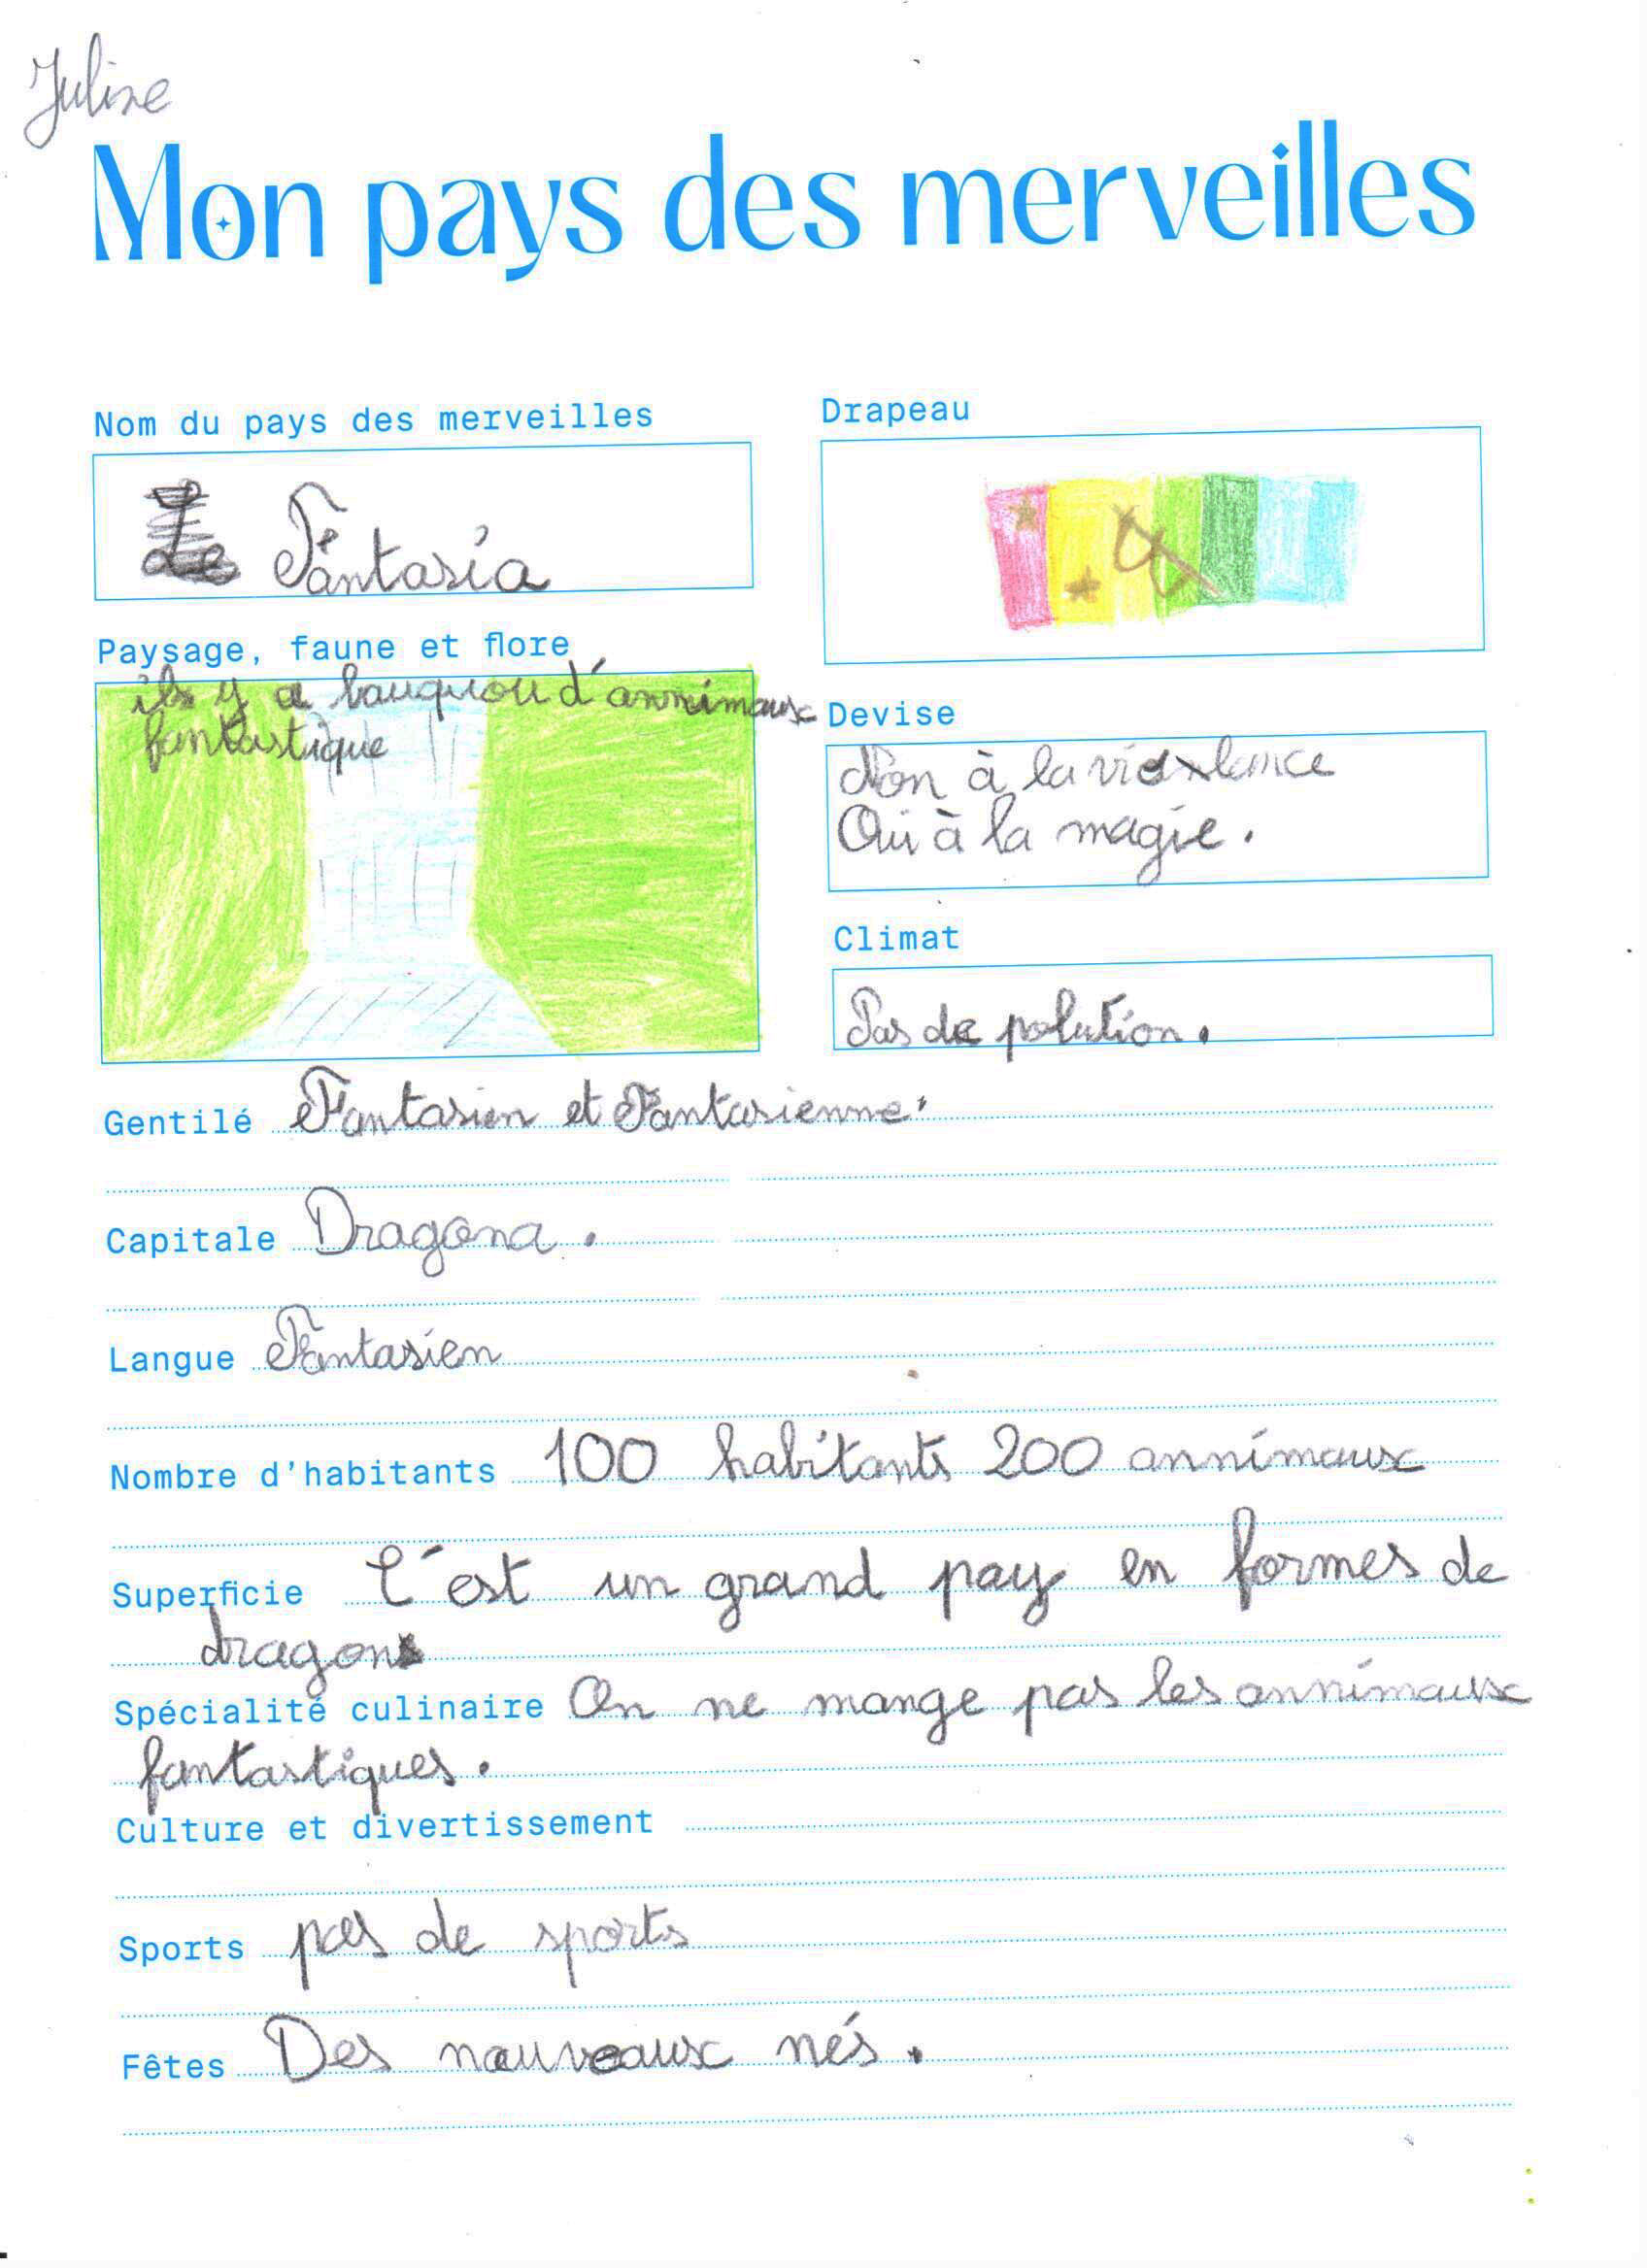 Juline
Mon pays des merveilles
Nom du pays des merveilles
Fantasia
Drapeau
Paysage, faune et flore
ils y a bauquou d'annimaux
fantastique
Devise
Non à la violance
Oui à la magie.
Climat
Pas de polution.
Gentilé Fantasien et Fantasienne.
Capitale Dragona.
Langue Fantasien
Nombre d'habitants 100 habitants 200 annimaux
Superficie C'est un grand pay en formes de
dragon
Spécialité culinaire On ne mange pas les annimaux
fantastiques.
Culture et divertissement
Sports pas de sports
Fêtes Des nauveaux nés.